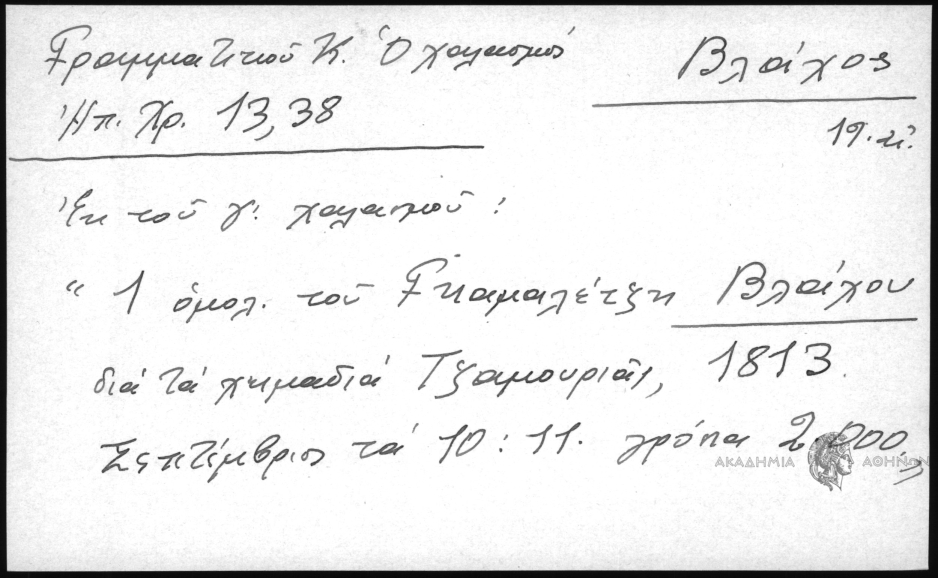 Γραμματικού Κ. Ὁ χαλασμός
Βλάχος
Ἠπ. Χρ. 13,38
19. αἰ.
Ἐκ τοῦ γ'. χαλασμοῦ:
“ 1 ὁμολ. τοῦ Γκαμαλέτζη Βλάχου
διά τά χειμαδιά Τζαμουριᾶς, 1813.
Σεπτέμβριος τά 10: 11. γρόσια 2.000
ΑΚΑΔΗΜΙΑ ΑΘΗΝΩΝ